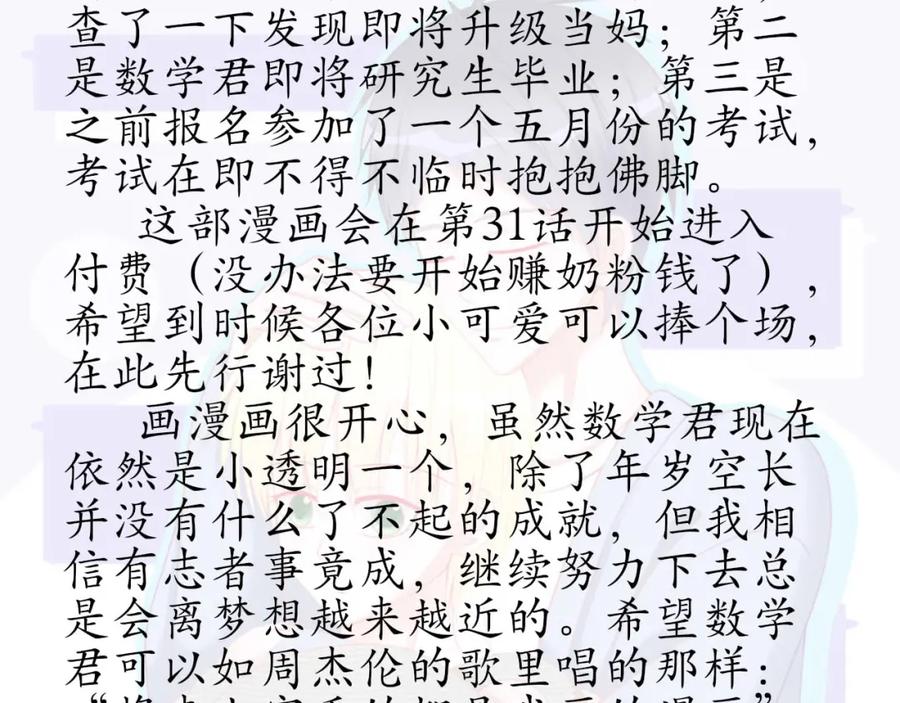 查了一下发现即将升级当妈；第二
是数学君即将研究生毕业；第三是
之前报名参加了一个五月份的考试，
考试在即不得不临时抱抱佛脚。
这部漫画会在第31话开始进入
付费（没办法要开始赚奶粉钱了），
希望到时候各位小可爱可以捧个场，
在此先行谢过！
画漫画很开心，虽然数学君现在
依然是小透明一个，除了年岁空长
并没有什么了不起的成就，但我相
信有志者事竟成，继续努力下去总
是会离梦想越来越近的。希望数学
君可以如周杰伦的歌里唱的那样：